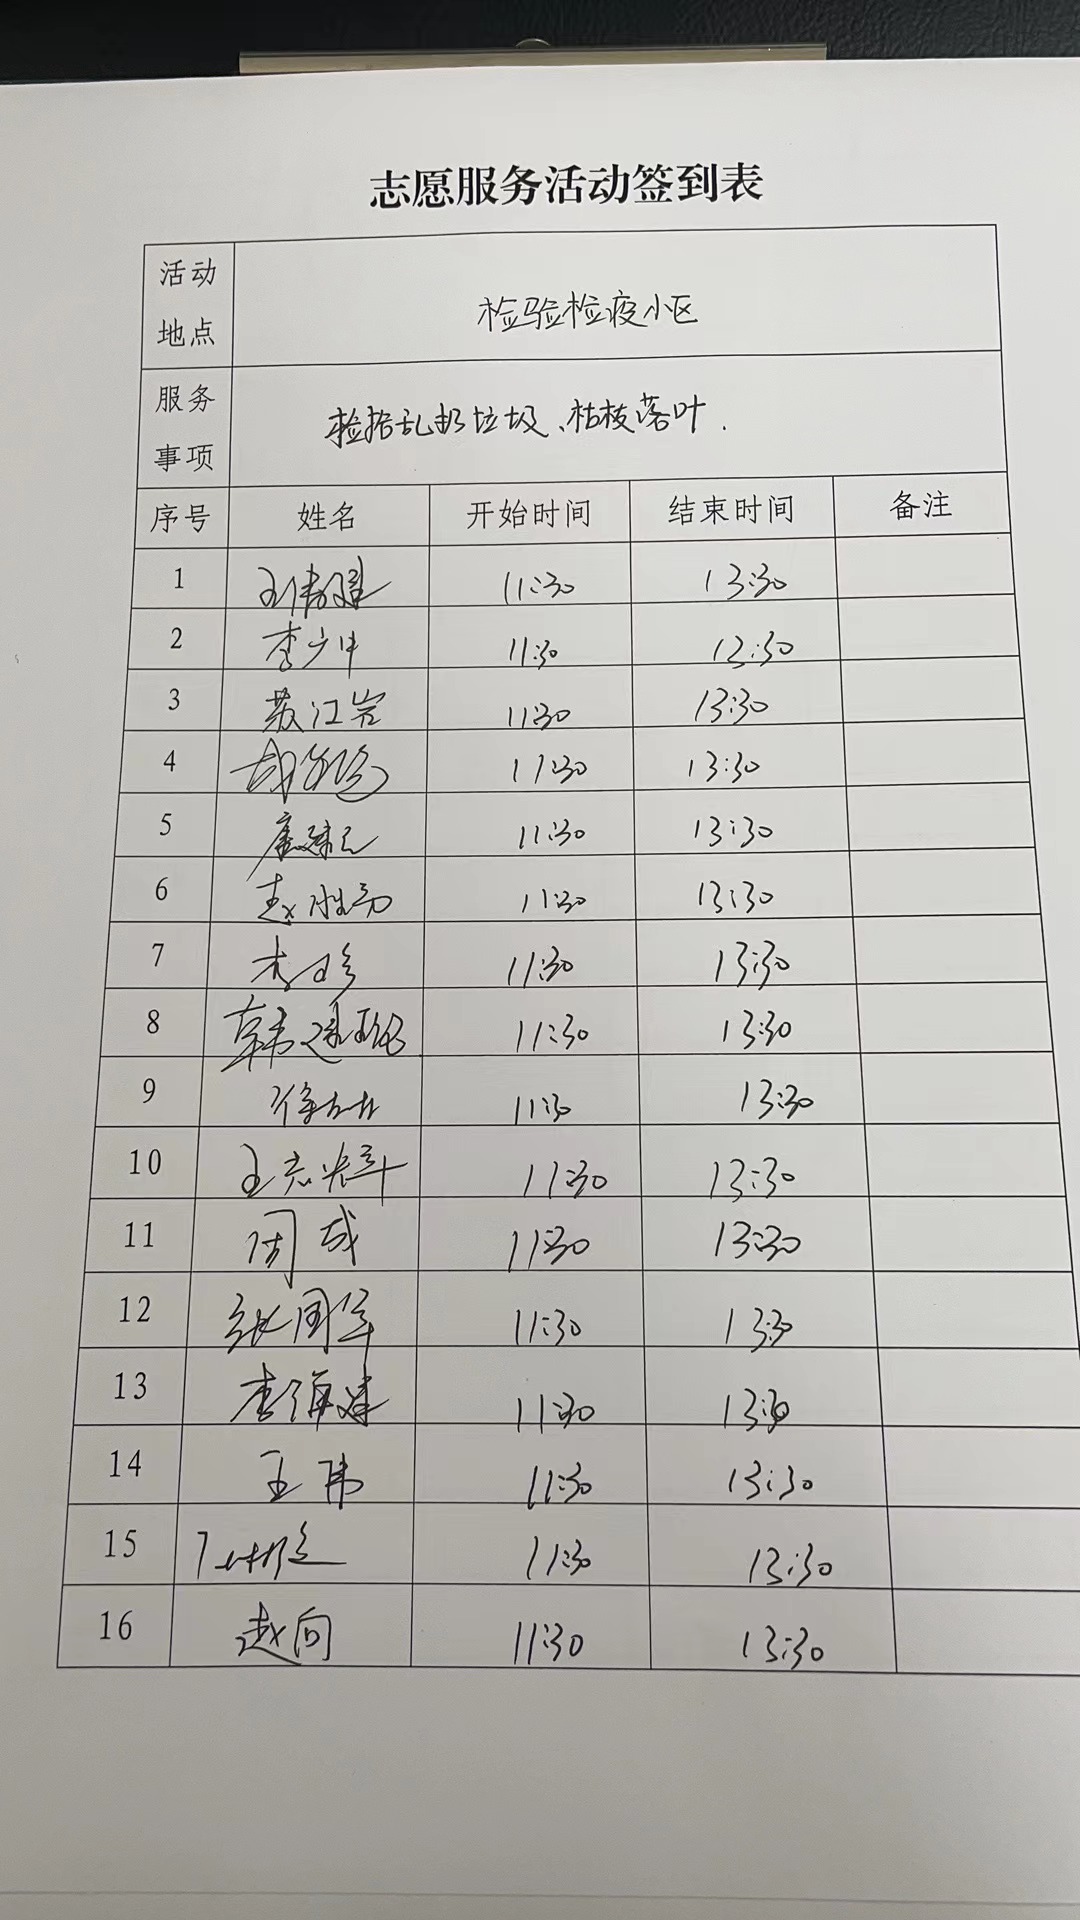 志愿服务活动签到表
活动地点 检验检疫小区
服务事项 捡拾乱扔垃圾、枯枝落叶.
序号 姓名 开始时间 结束时间 备注
1 11:30 13:30
2 李少中 11:30 13:30
3 苏江岩 11:30 13:30
4 11:30 13:30
5 11:30 13:30
6 赵胜勇 11:30 13:30
7 11:30 13:30
8 11:30 13:30
9 11:30 13:30
10 王志 11:30 13:30
11 周成 11:30 13:30
12 张国军 11:30 13:30
13 李海建 11:30 13:30
14 王伟 11:30 13:30
15 11:30 13:30
16 赵向 11:30 13:30